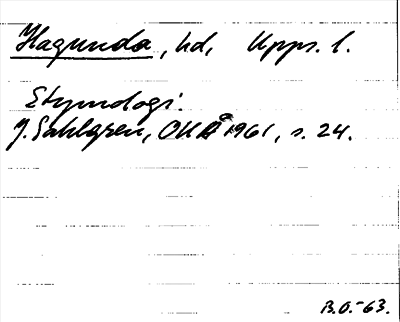 Hagunda, hd, Upps. l.
Etymologi.
J. Sahlgren, OUÅ 1961, s. 24.
B.O.-63.